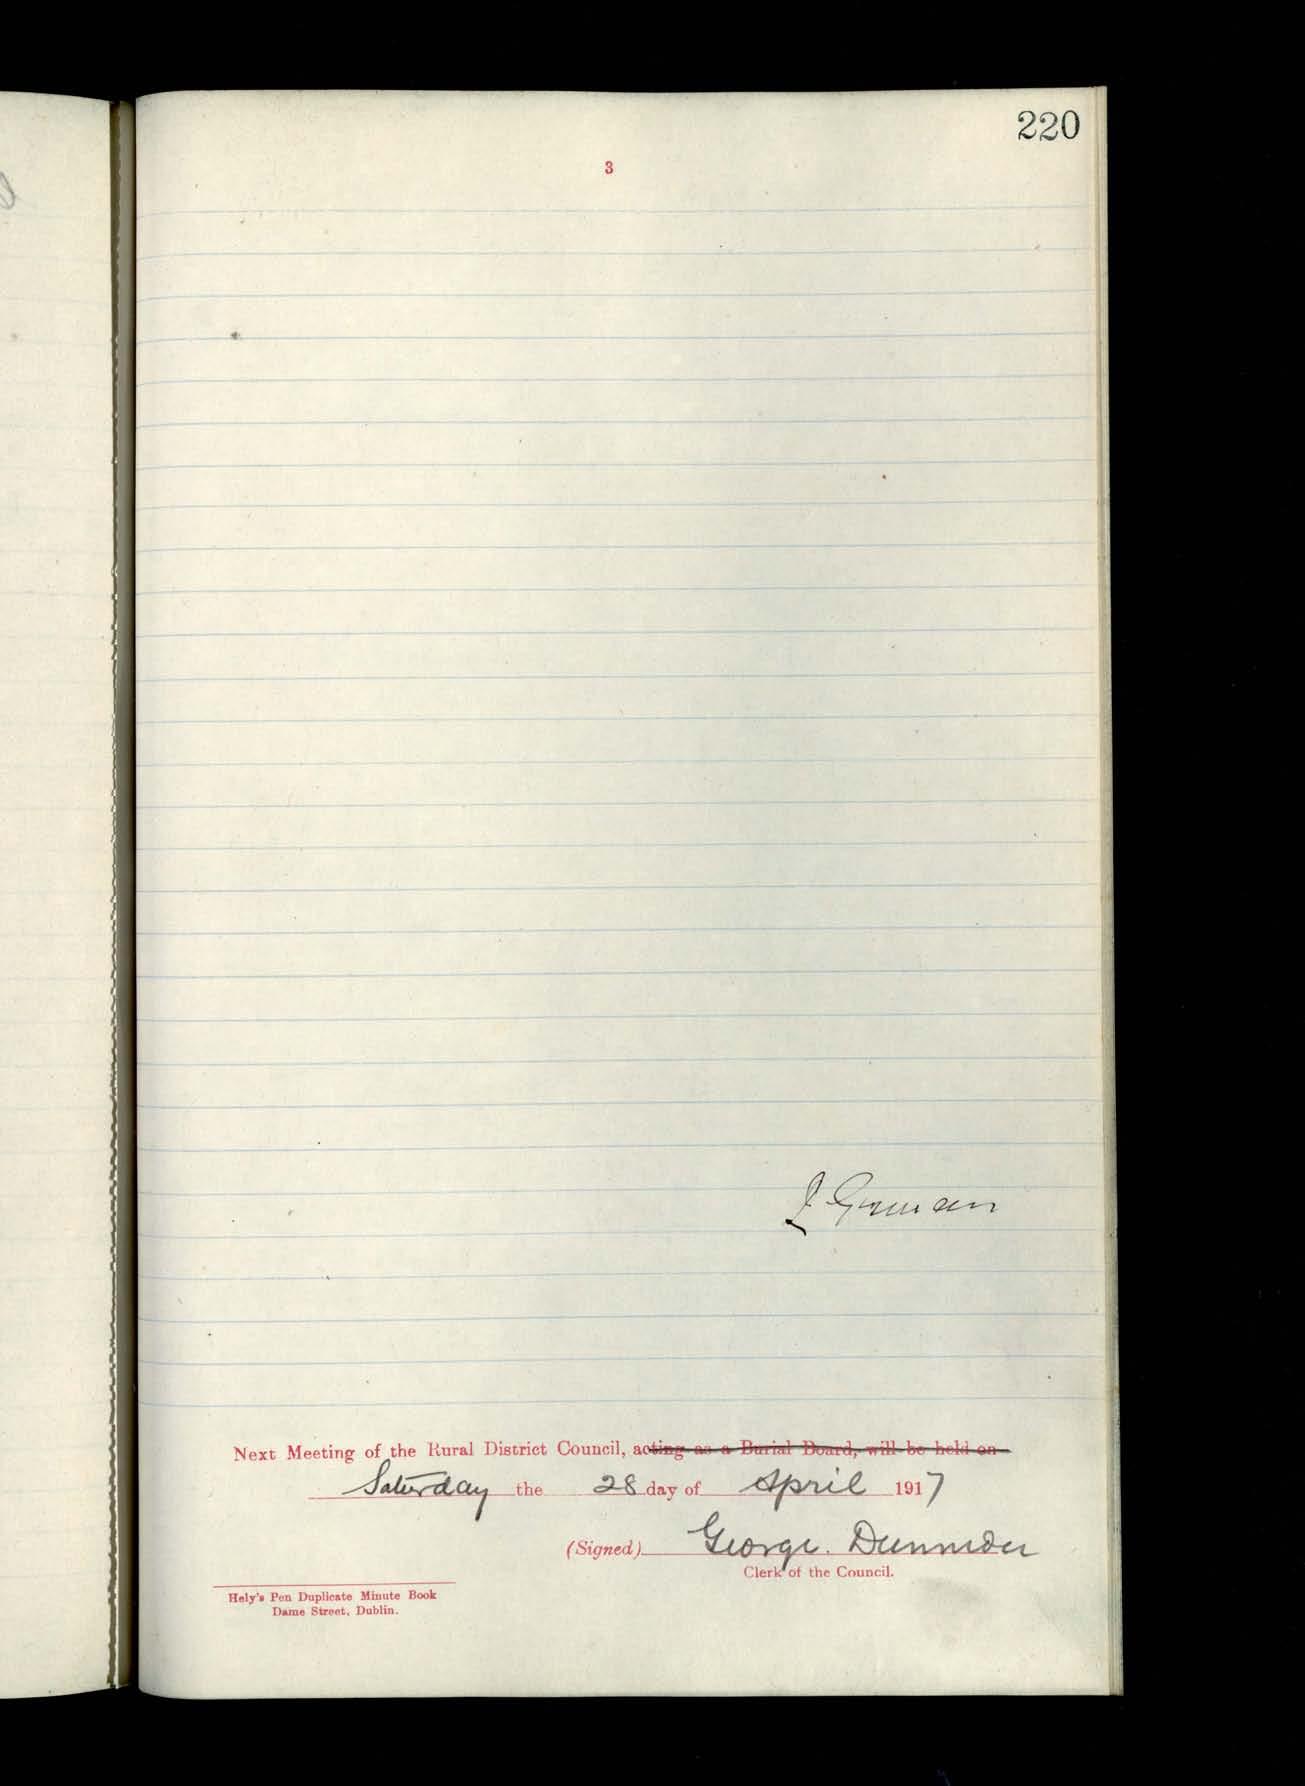 220
3
J Gorman
Next Meeting of the Rural District Council, acting as a Burial Board, will be held on
Saturday the 28 day of April 1917
(Signed) George.
Clerk of the Council.
Hely's Pen Duplicate Minute Book
Dame Street, Dublin.